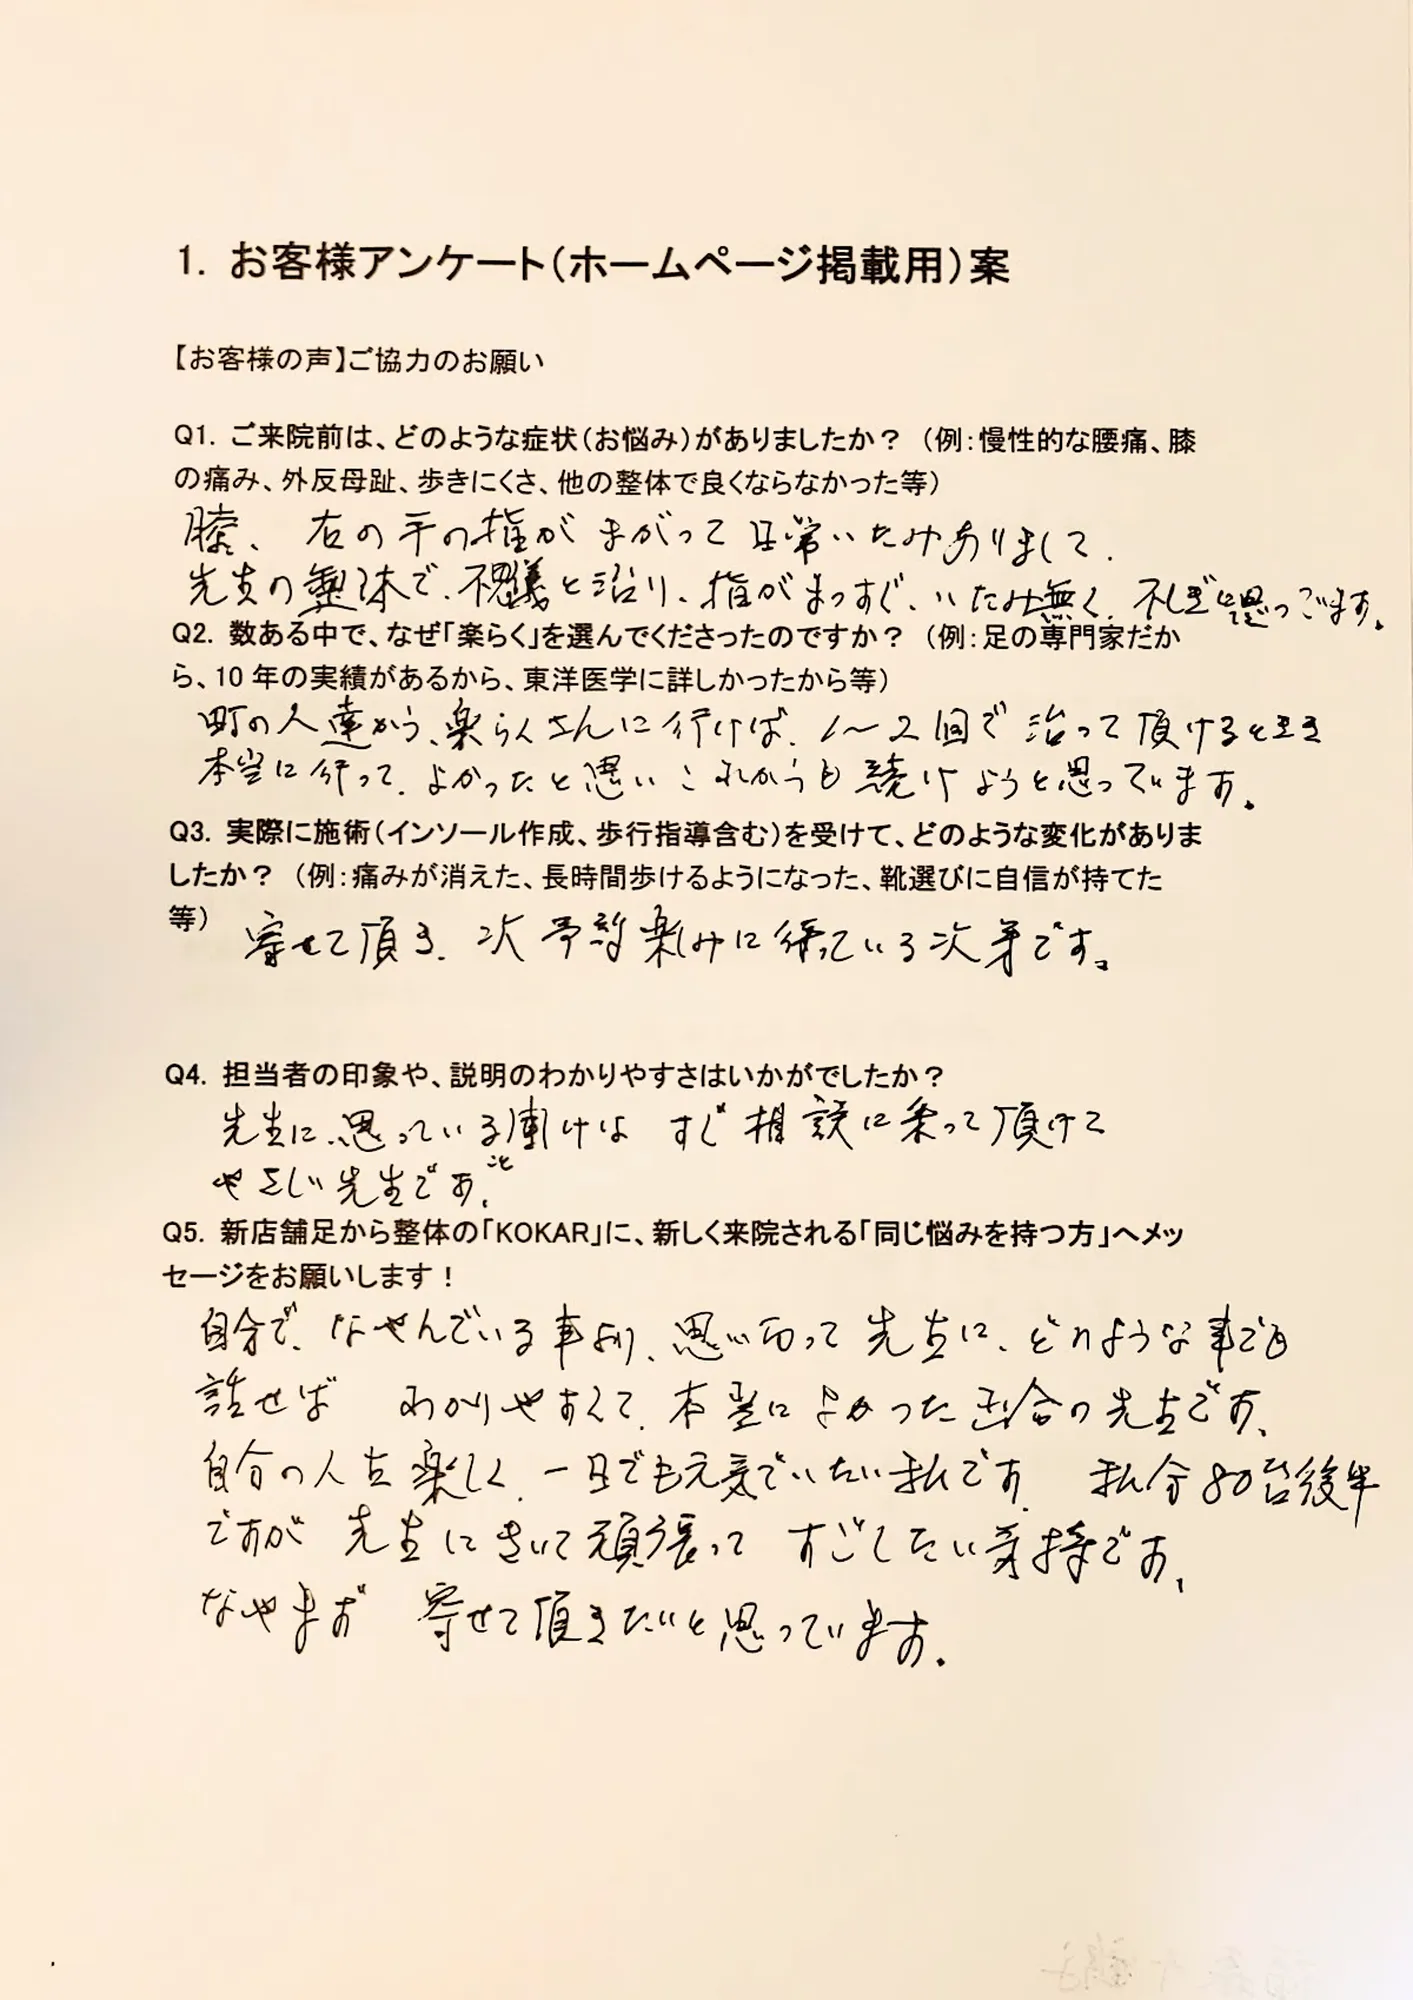 1. お客様アンケート(ホームページ掲載用)案
【お客様の声】ご協力のお願い
Q1. ご来院前は、どのような症状(お悩み)がありましたか? (例:慢性的な腰痛、膝
の痛み、外反母趾、歩きにくさ、他の整体で良くならなかった等)
膝、右の手の指がまがって日常いたみありまして.
先生の整体で、不思議と治り、指がまっすぐ、いたみ無く、不しぎに思っごます。
Q2. 数ある中で、なぜ「楽らく」を選んでくださったのですか? (例:足の専門家だか
ら、10 年の実績があるから、東洋医学に詳しかったから等)
町の人達から、楽らくさんに行けば、1〜2回で治って頂けるときき
本当に行って、よかったと思いこれからも続けようと思っています。
Q3. 実際に施術(インソール作成、歩行指導含む)を受けて、どのような変化がありま
したか? (例:痛みが消えた、長時間歩けるようになった、靴選びに自信が持てた
等)
寄せて頂き、次予約楽しみに待っている次第です。
Q4. 担当者の印象や、説明のわかりやすさはいかがでしたか?
先生に思っている事けは すぐ相談に乗って頂けて
やさしい先生です。
Q5. 新店舗足から整体の「KOKAR」に、新しく来院される「同じ悩みを持つ方」へメッ
セージをお願いします!
自分で、なやんでいる事より、思い切って先生に、どのような事でも
話せば わかりやすくて、本当によかった 具合の先生です、
自分の人生楽しく、一日でも元気でいたい私です、 私分80台後半
ですが 先生にきいて頑張って すごしたい気持です、
なやまず 寄せて頂きたいと思っています。